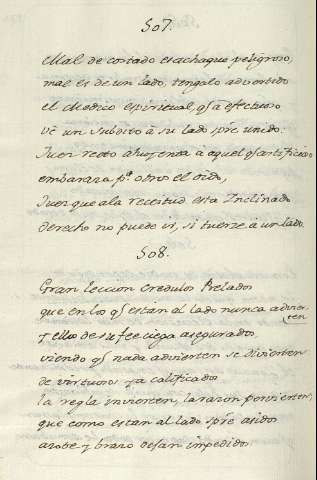 507.
Mal de costado es achaque peligroso,
mal es de un lado, tengalo advertido
el Medico espiritual, q̃ a efectuoso
vè un subdito à su lado sp̃re unido.
Juez recto ahuyenta à aquel q̃ artificioso
embaraza p.ª otro el oido,
Juez que a la rectitud esta Inclinado
derecho no puede ir, si tuerze à un lado.
508.
Gran leccion credulos Prelados
que en los q̃ estan al lado nunca advier-
ten
y ellos de su fee ciega asegurados
viendo q̃ nada advierten se divierten
de virtuosos ya calificados
la regla invierten, la razon pervierten,
que como estan al lado sp̃re asidos
azote y brazo dejan impedidos.